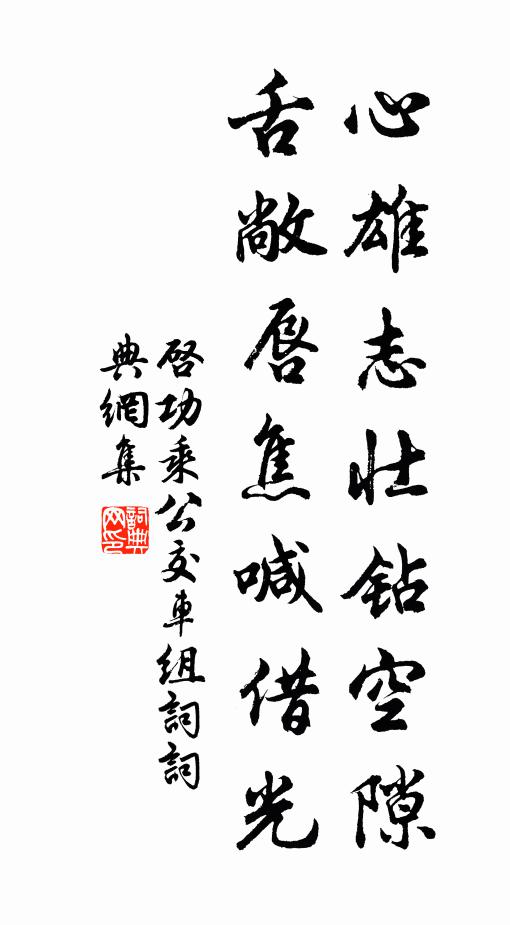 心雄志壮钻空隙
舌敞唇焦喊借光
启功乘公交车组詞詞
典網集
詞典
网印